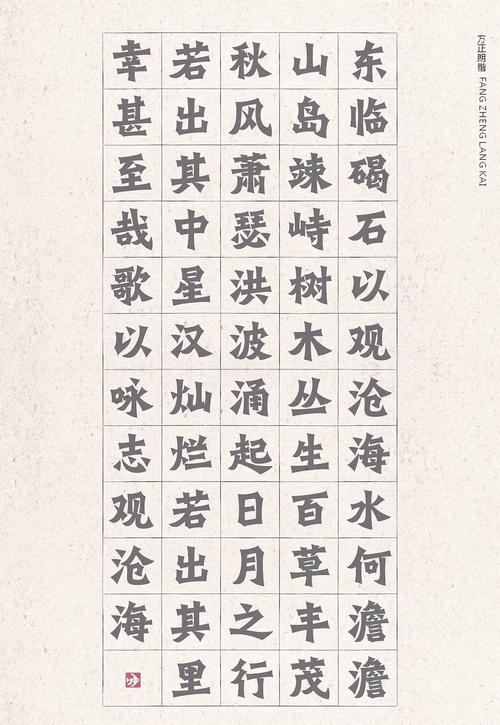 方正朗楷 FANG ZHENG LANG KAI
东临碣石以观沧海水何澹澹
山岛竦峙树木丛生百草丰茂
秋风萧瑟洪波涌起日月之行
若出其中星汉灿烂若出其里
幸甚至哉歌以咏志观沧海